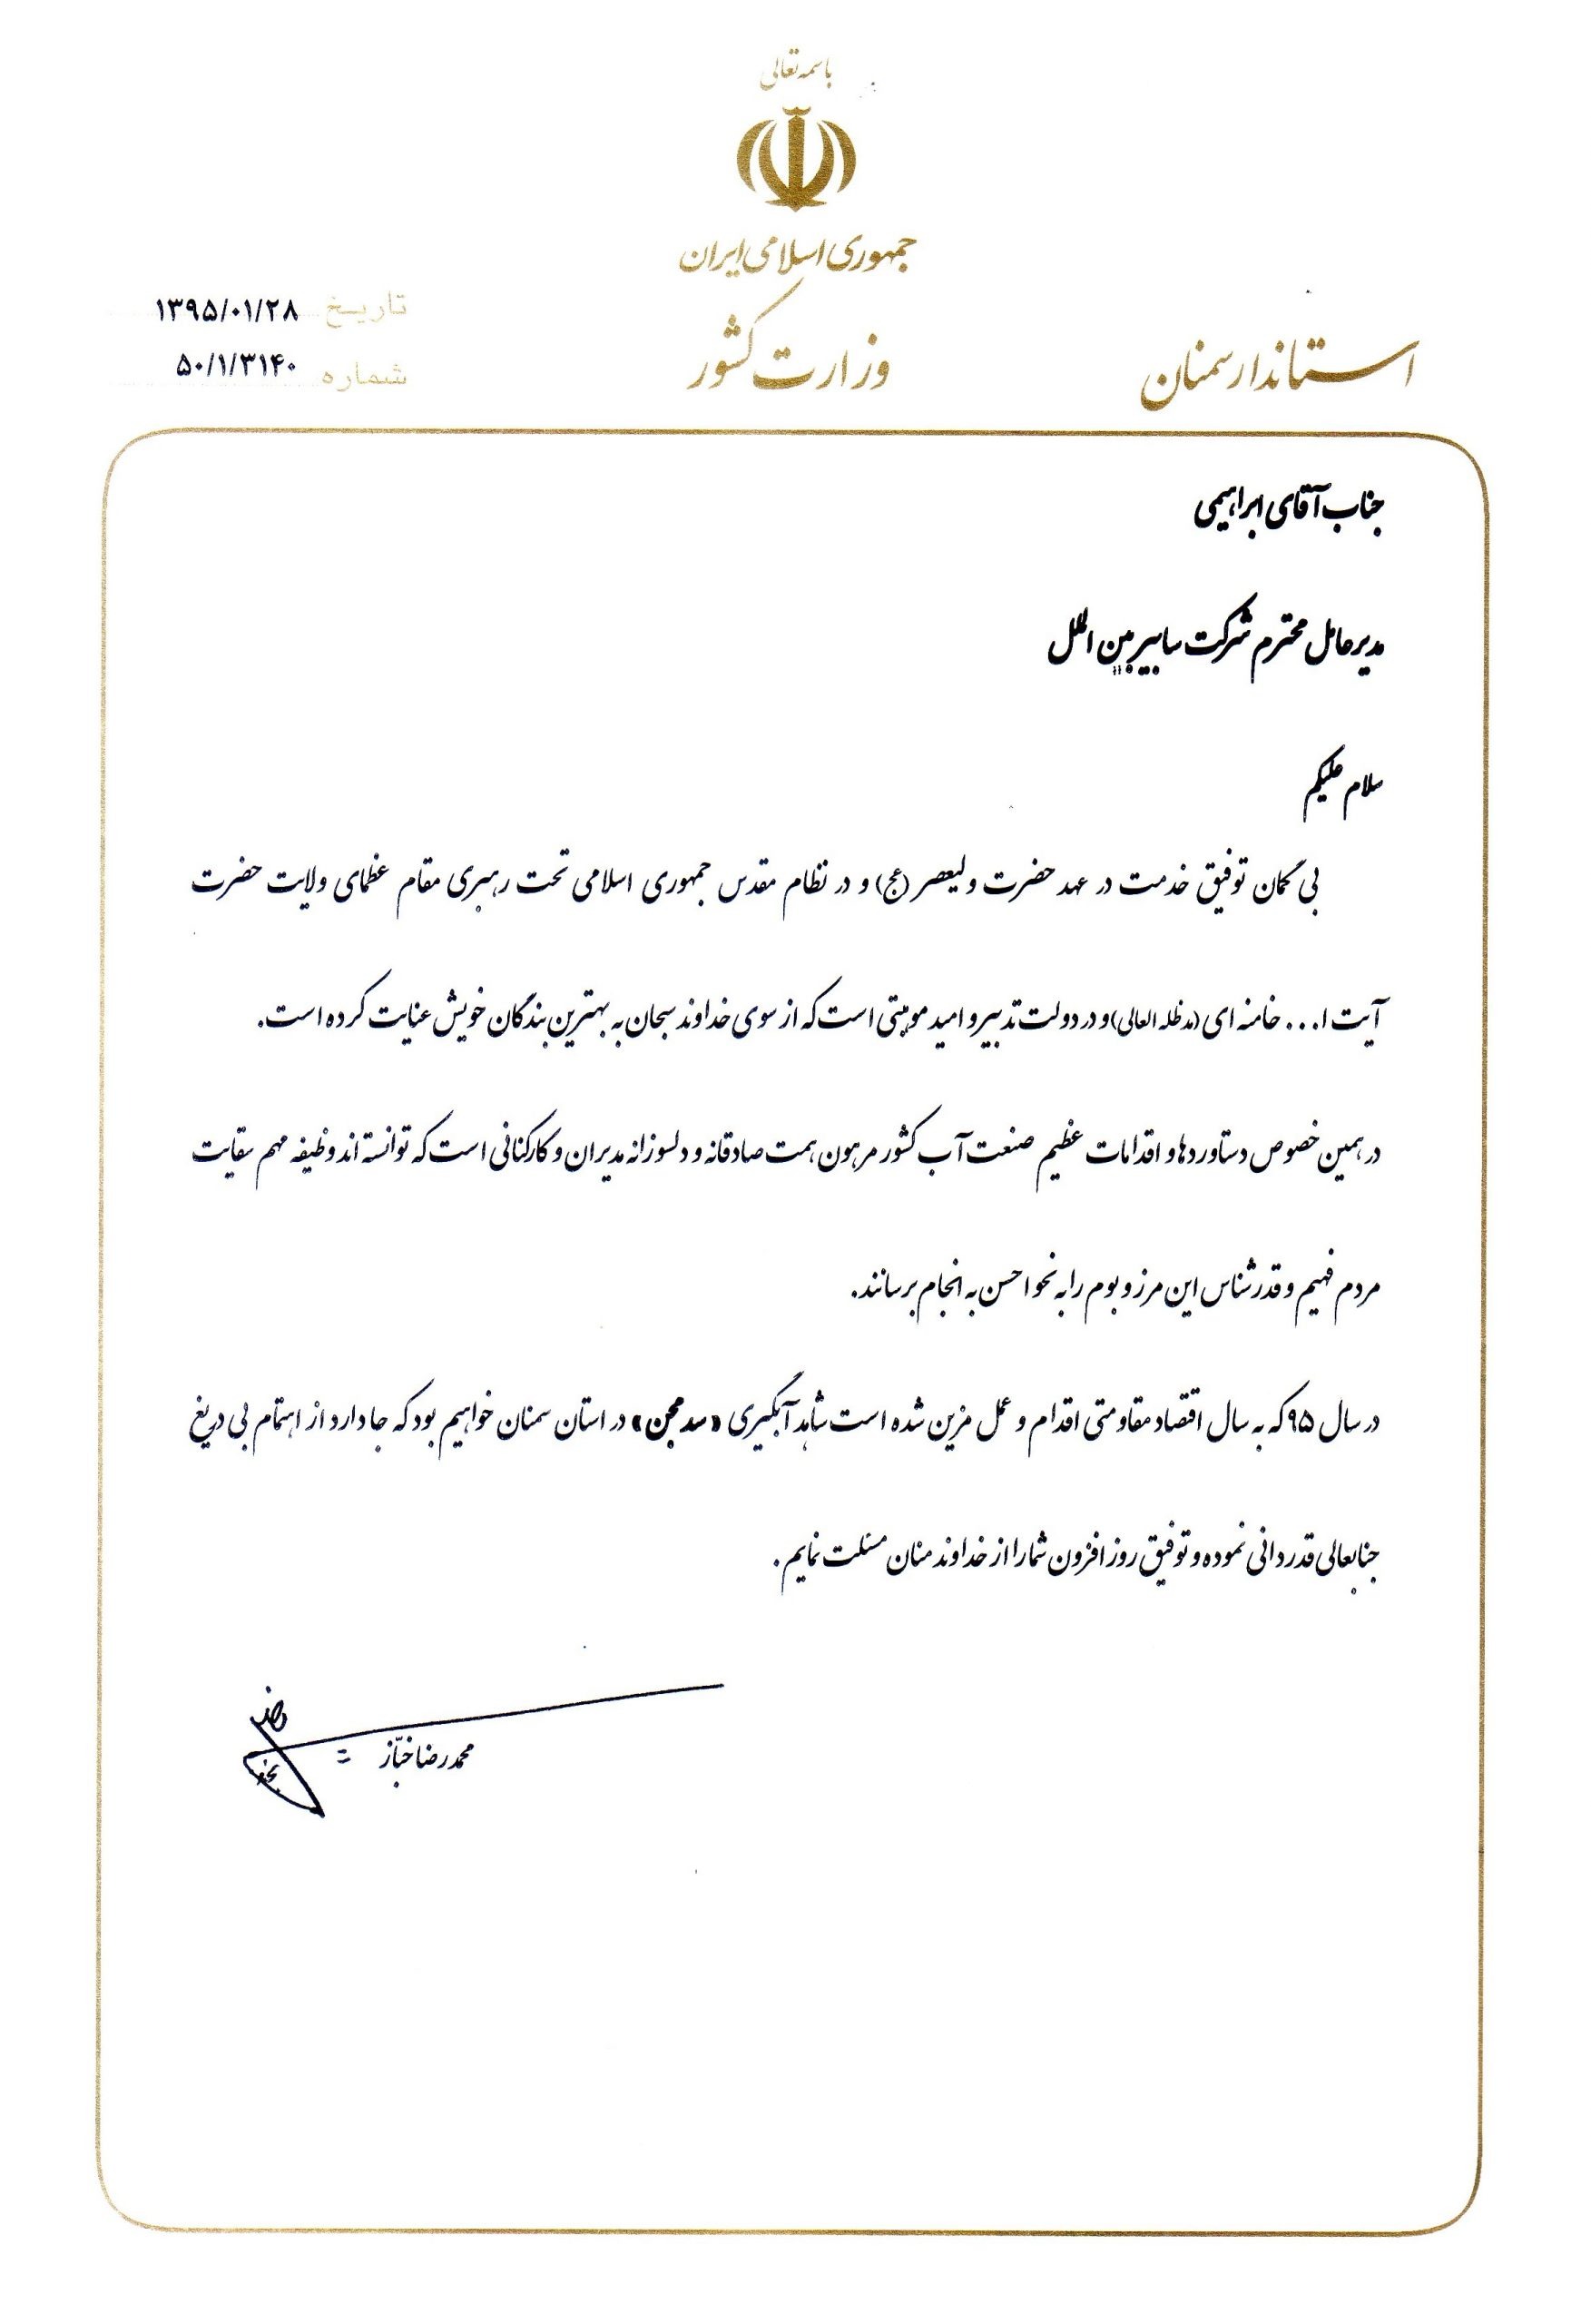 باسمه تعالی
جمهوری اسلامی ایران
وزارت کشور
استاندار سمنان
تاریخ ۱۳۹۵/۰۱/۲۸
شماره ۵۰/۱/۳۱۴۰
جناب آقای ابراهیمی
مدیرعامل محترم شرکت سابیر بین الملل
سلام علیکم
بی گمان توفیق خدمت در عهد حضرت ولیعصر (عج) و در نظام مقدس جمهوری اسلامی تحت رهبری مقام عظمای ولایت حضرت
آیت ا... خامنه ای (مدظله العالی) و در دولت تدبیر و امید موهبتی است که از سوی خداوند سبحان به بهترین بندگان خویش عنایت کرده است.
در همین خصوص دستاوردها و اقدامات عظیم صنعت آب کشور مرهون همت صادقانه و دلسوزانه مدیران و کارکنانی است که توانسته اند وظیفه مهم سقایت
مردم فهیم و قدرشناس این مرز و بوم را به نحو احسن به انجام برسانند.
در سال ۹۵ که به سال اقتصاد مقاومتی اقدام و عمل مزین شده است شاهد آبگیری «سد مجن» در استان سمنان خواهیم بود که جا دارد از اهتمام بی دریغ
جنابعالی قدردانی نموده و توفیق روز افزون شما را از خداوند منان مسئلت نمایم.
محمدرضا خبّاز